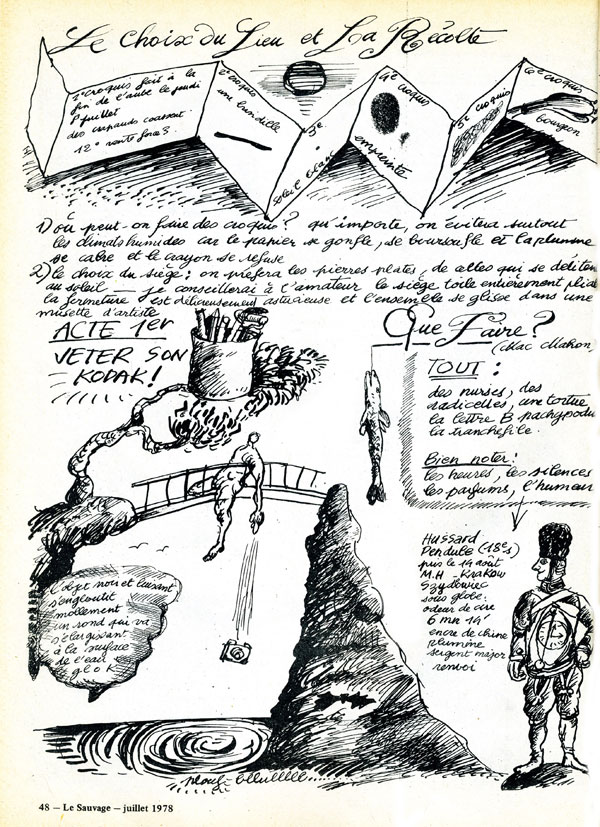 Le Choix du Lieu et La Récolte
1e croquis fait à la
fin de l'aube le jeudi
8 juillet
des crapauds coassent
12° vents force 3.
2e croquis
une brindille
3e
soleil blanc
4e croquis
empreinte
5e croquis
6e croquis
bourgeon
1) où peut-on faire des croquis? qu'importe, on évitera surtout
les climats humides car le papier se gonfle, se boursoufle et la plume
se cabre et le crayon se refuse
2) le choix du siège: on préfera les pierres plates, de celles qui se délitent
au soleil — je conseillerai à l'amateur le siège toile entièrement pliable
la fermeture est délicieusement astucieuse et l'ensemble se glisse dans une
musette d'artiste
ACTE 1er
VETER SON
KODAK!
Que Faire?
(Mac Mahon,
TOUT:
des nurses, des
radicelles, une tortue
la lettre B pachypodu
la tranchefile.
Bien noter:
les heures, les silences
les parfums, l'humeur
Hussard
Pendule (18e s)
pris le 14 août
M.H - Krakow
Szydowiec
sous globe.
odeur de cire
6 mn 14'
encre de chine
plumine
sergent major
renvoi
L'objet noir et luisant
s'engloutit
mollement
un rond qui va
s'élargissant
à la surface
de l'eau
glok
plouf-blululllll.....
48 — Le Sauvage — juillet 1978